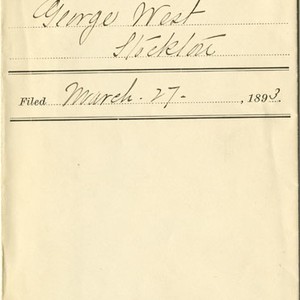 George West
Stockton
Filed March 27 , 1893.